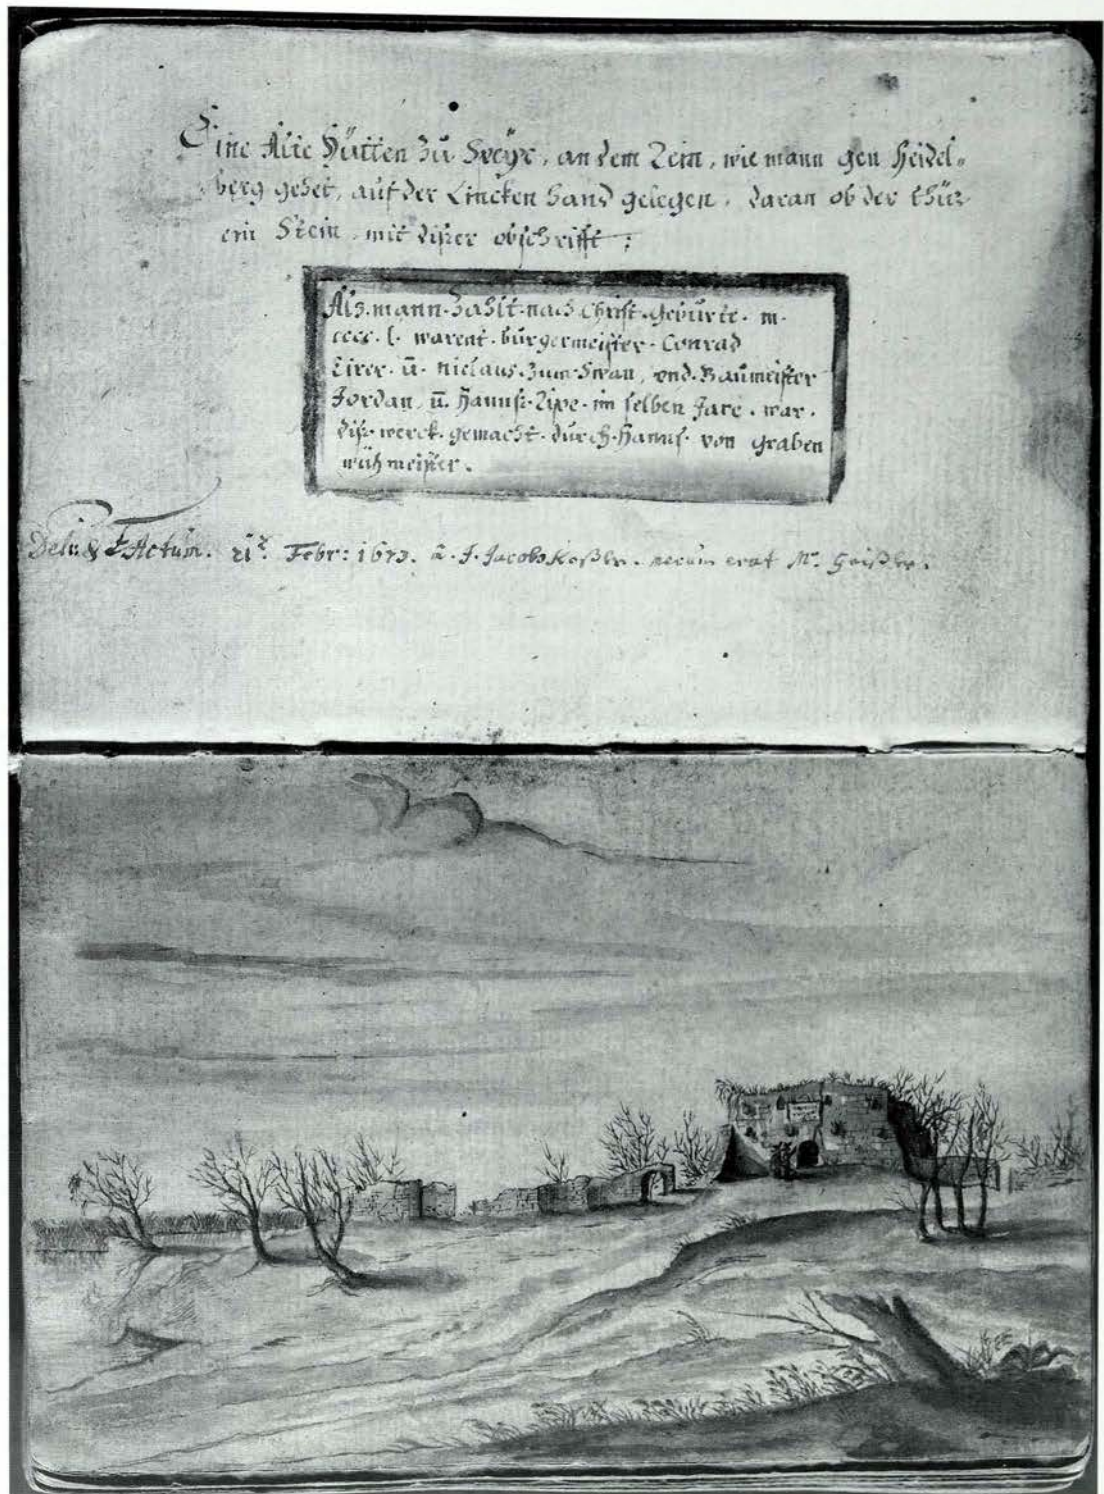 Eine Alte Hütten zu Speyr, an dem Rein, wie mann gen Heidel=
berg gehet, auf der Lincken hand gelegen, daran ob der thür
ein Stein, mit dißer obschrifft:
Als·mann·zahlt·nach Christ·gebürte·m·
cccc·l·warent·bürgermeister·Conrad
ü·niclaus·zum·Swan, vnd·Baumeister
Jordan, ü·Hannß·im selben Jare·war·
diß·werck·gemacht·durch·Hannß·von graben
meister.
Delin: & Actum. Febr: 1673. à·J·Jacob Koßler·mecum erat Mr. Geißler.